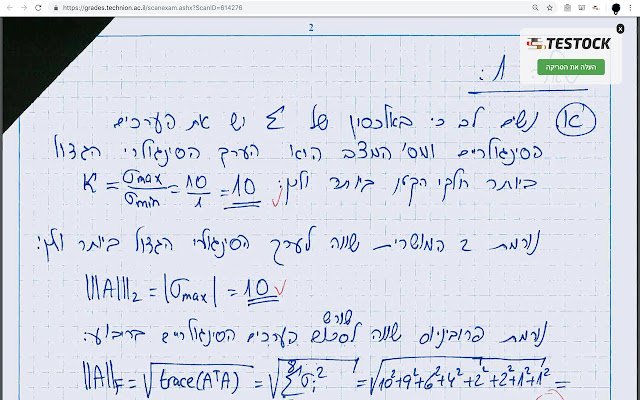 https://grades.technion.ac.il/scanexam.ashx?ScanID=614276
2
TESTOCK
העלה את הטריקה
1 :
א) נשים לב כי באלכסון של Σ יש את הערכים
הסינגולריים ומס' המצב הוא הערך הסינגולרי הגדול
ביותר חלקי הקטן ביותר ולכן: K = σmax/σmin = 10/1 = 10
נורמת 2 המושרית שווה לערך הסינגולרי הגדול ביותר ולכן:
|||A|||₂ = |σmax| = 10
נורמת פרובניוס שווה לשורש סכום הערכים הסינגולריים בריבוע:
||A||F = √trace(AᵀA) = √Σσᵢ² = √10²+9²+6²+4²+2²+2²+1²+1² =